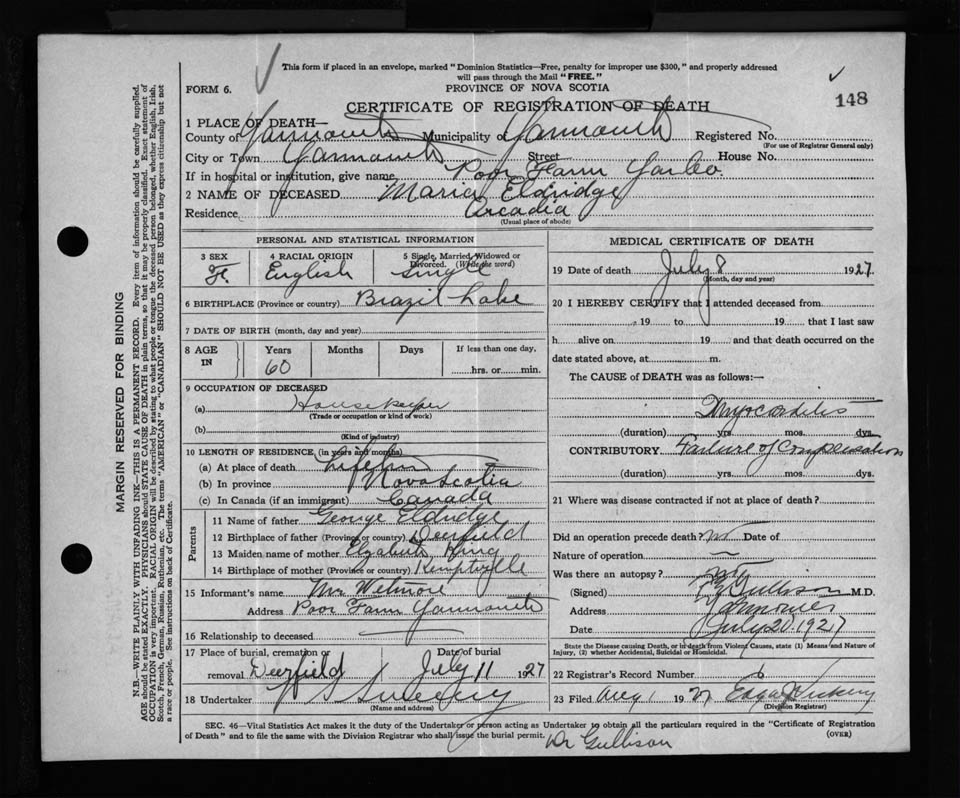 This form if placed in an envelope, marked "Dominion Statistics—Free, penalty for improper use $300," and properly addressed
will pass through the Mail "FREE."
FORM 6.
PROVINCE OF NOVA SCOTIA
148
CERTIFICATE OF REGISTRATION OF DEATH
1 PLACE OF DEATH—
County of Yarmouth Municipality of Yarmouth Registered No.
(For use of Registrar General only)
City or Town Yarmouth Street House No.
If in hospital or institution, give name Poor Farm Yar Co.
2 NAME OF DECEASED Maria Eldridge
Residence Arcadia
(Usual place of abode)
PERSONAL AND STATISTICAL INFORMATION
3 SEX 4 RACIAL ORIGIN 5 Single, Married, Widowed or Divorced. (Write the word)
F. English Single
6 BIRTHPLACE (Province or country) Brazil Lake
7 DATE OF BIRTH (month, day and year)
8 AGE IN Years Months Days If less than one day,
60 hrs. or min.
9 OCCUPATION OF DECEASED
(a) Housekeeper
(Trade or occupation or kind of work)
(b)
(Kind of industry)
10 LENGTH OF RESIDENCE (in years and months)
(a) At place of death
(b) In province Nova Scotia
(c) In Canada (if an immigrant) Canada
Parents
11 Name of father George Eldridge
12 Birthplace of father (Province or country) Deerfield
13 Maiden name of mother Elizabeth King
14 Birthplace of mother (Province or country) Kemptville
15 Informant's name Mr Wetmore
Address Poor Farm Yarmouth
16 Relationship to deceased
17 Place of burial, cremation or removal Date of burial
Deerfield July 11 1927
18 Undertaker V S Sweeny
(Name and address)
MEDICAL CERTIFICATE OF DEATH
19 Date of death July 8 1927
(Month, day and year)
20 I HEREBY CERTIFY that I attended deceased from
, 19 to 19 that I last saw
h alive on 19 and that death occurred on the
date stated above, at m.
The CAUSE of DEATH was as follows:—
Myocarditis
(duration) yrs. mos. dys.
CONTRIBUTORY Failure of Compensation
(duration) yrs. mos. dys.
21 Where was disease contracted if not at place of death?
Did an operation precede death? no Date of
Nature of operation —
Was there an autopsy? no
(Signed) Gullison M.D.
Address Yarmouth
Date July 20 1927
State the Disease causing Death, or in death from Violent Causes, state (1) Means and Nature of Injury, (2) whether Accidental, Suicidal or Homicidal.
22 Registrar's Record Number 6
23 Filed Aug 1 1927 Edgar J Vickery
(Division Registrar)
SEC. 46—Vital Statistics Act makes it the duty of the Undertaker or person acting as Undertaker to obtain all the particulars required in the "Certificate of Registration
of Death" and to file the same with the Division Registrar who shall issue the burial permit.
(OVER)
Dr Gullison
MARGIN RESERVED FOR BINDING
N.B.—WRITE PLAINLY WITH UNFADING INK—THIS IS A PERMANENT RECORD. Every item of information should be carefully supplied.
AGE should be stated EXACTLY. PHYSICIANS should STATE CAUSE OF DEATH in plain terms, so that it may be properly classified. Exact statement of
OCCUPATION is very important. RACIAL ORIGIN will be described by stating to what people or tongue the deceased person belonged, whether English, Irish,
Scotch, French, German, Russian, Ruthenian, etc. The terms "AMERICAN" or "CANADIAN" SHOULD NOT BE USED as they express citizenship but not
a race or people. See instructions on back of Certificate.